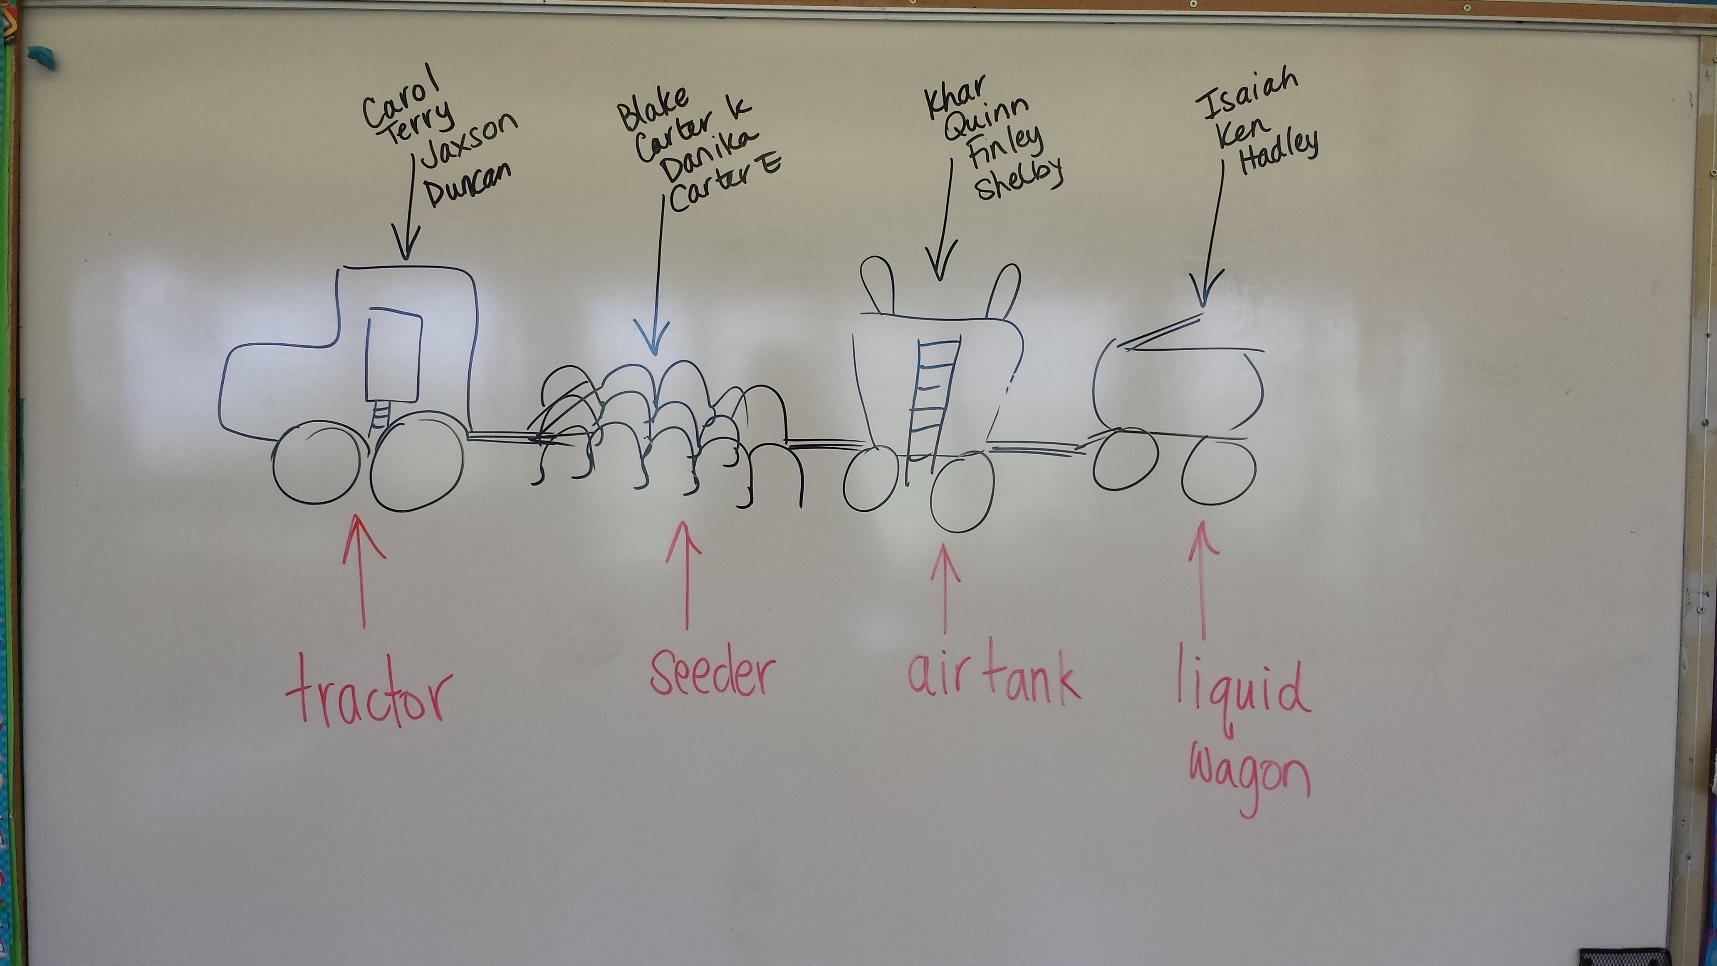 Carol
Terry
Jaxson
Duncan
Blake
Carter K
Danika
Carter E
Khar
Quinn
Finley
Shelby
Isaiah
Ken
Hadley
tractor
seeder
air tank
liquid
wagon